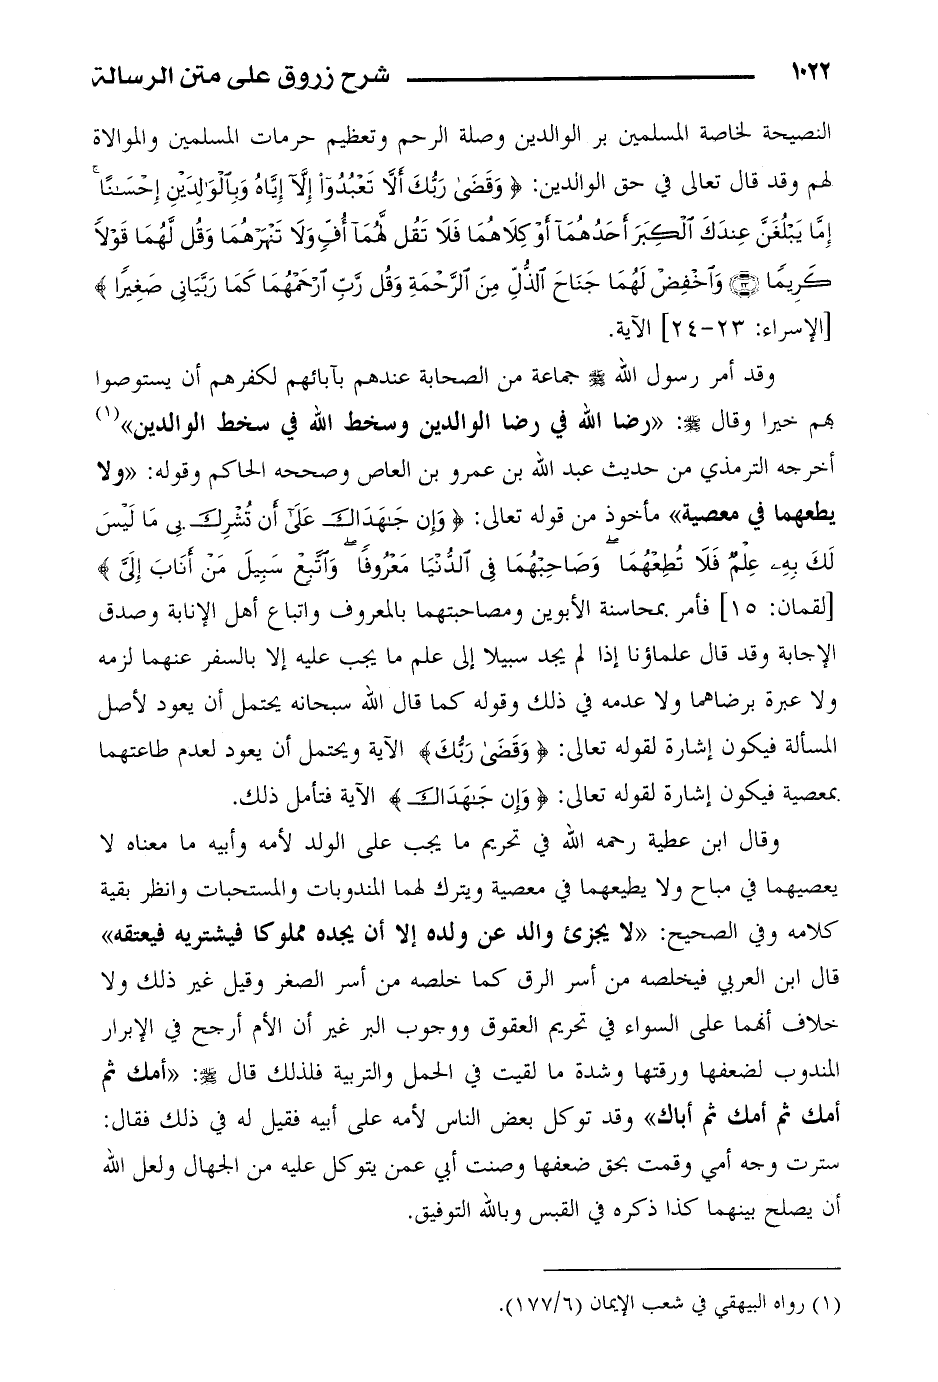 ١٠٢٢ شرح زروق على متن الرسالة
النصيحة لخاصة المسلمين بر الوالدين وصلة الرحم وتعظيم حرمات المسلمين والموالاة
لهم وقد قال تعالى في حق الوالدين: ﴿ وَقَضَىٰ رَبُّكَ أَلَّا تَعْبُدُوٓا۟ إِلَّآ إِيَّاهُ وَبِٱلْوَٰلِدَيْنِ إِحْسَٰنًا ۚ
إِمَّا يَبْلُغَنَّ عِندَكَ ٱلْكِبَرَ أَحَدُهُمَآ أَوْ كِلَاهُمَا فَلَا تَقُل لَّهُمَآ أُفٍّ وَلَا تَنْهَرْهُمَا وَقُل لَّهُمَا قَوْلًا
كَرِيمًا ۝٢٣ وَٱخْفِضْ لَهُمَا جَنَاحَ ٱلذُّلِّ مِنَ ٱلرَّحْمَةِ وَقُل رَّبِّ ٱرْحَمْهُمَا كَمَا رَبَّيَانِى صَغِيرًا ﴾
[الإسراء: ٢٣-٢٤] الآية.
وقد أمر رسول الله ﷺ جماعة من الصحابة عندهم بآبائهم لكفرهم أن يستوصوا
بهم خيرا وقال ﷺ: «رضا الله في رضا الوالدين وسخط الله في سخط الوالدين»(١)
أخرجه الترمذي من حديث عبد الله بن عمرو بن العاص وصححه الحاكم وقوله: «ولا
يطعهما في معصية» مأخوذ من قوله تعالى: ﴿ وَإِن جَٰهَدَاكَ عَلَىٰٓ أَن تُشْرِكَ بِى مَا لَيْسَ
لَكَ بِهِۦ عِلْمٌ فَلَا تُطِعْهُمَا ۖ وَصَاحِبْهُمَا فِى ٱلدُّنْيَا مَعْرُوفًا ۖ وَٱتَّبِعْ سَبِيلَ مَنْ أَنَابَ إِلَىَّ ﴾
[لقمان: ١٥] فأمر بمحاسنة الأبوين ومصاحبتهما بالمعروف واتباع أهل الإنابة وصدق
الإجابة وقد قال علماؤنا إذا لم يجد سبيلا إلى علم ما يجب عليه إلا بالسفر عنهما لزمه
ولا عبرة برضاهما ولا عدمه في ذلك وقوله كما قال الله سبحانه يحتمل أن يعود لأصل
المسألة فيكون إشارة لقوله تعالى: ﴿ وَقَضَىٰ رَبُّكَ ﴾ الآية ويحتمل أن يعود لعدم طاعتهما
بمعصية فيكون إشارة لقوله تعالى: ﴿ وَإِن جَٰهَدَاكَ ﴾ الآية فتأمل ذلك.
وقال ابن عطية رحمه الله في تحريم ما يجب على الولد لأمه وأبيه ما معناه لا
يعصيهما في مباح ولا يطيعهما في معصية ويترك لهما المندوبات والمستحبات وانظر بقية
كلامه وفي الصحيح: «لا يجزئ والد عن ولده إلا أن يجده مملوكا فيشتريه فيعتقه»
قال ابن العربي فيخلصه من أسر الرق كما خلصه من أسر الصغر وقيل غير ذلك ولا
خلاف أنهما على السواء في تحريم العقوق ووجوب البر غير أن الأم أرجح في الإبرار
المندوب لضعفها ورقتها وشدة ما لقيت في الحمل والتربية فلذلك قال ﷺ: «أمك ثم
أمك ثم أمك ثم أباك» وقد توكل بعض الناس لأمه على أبيه فقيل له في ذلك فقال:
سترت وجه أمي وقمت بحق ضعفها وصنت أبي عمن يتوكل عليه من الجهال ولعل الله
أن يصلح بينهما كذا ذكره في القبس وبالله التوفيق.
(١) رواه البيهقي في شعب الإيمان (١٧٧/٦).